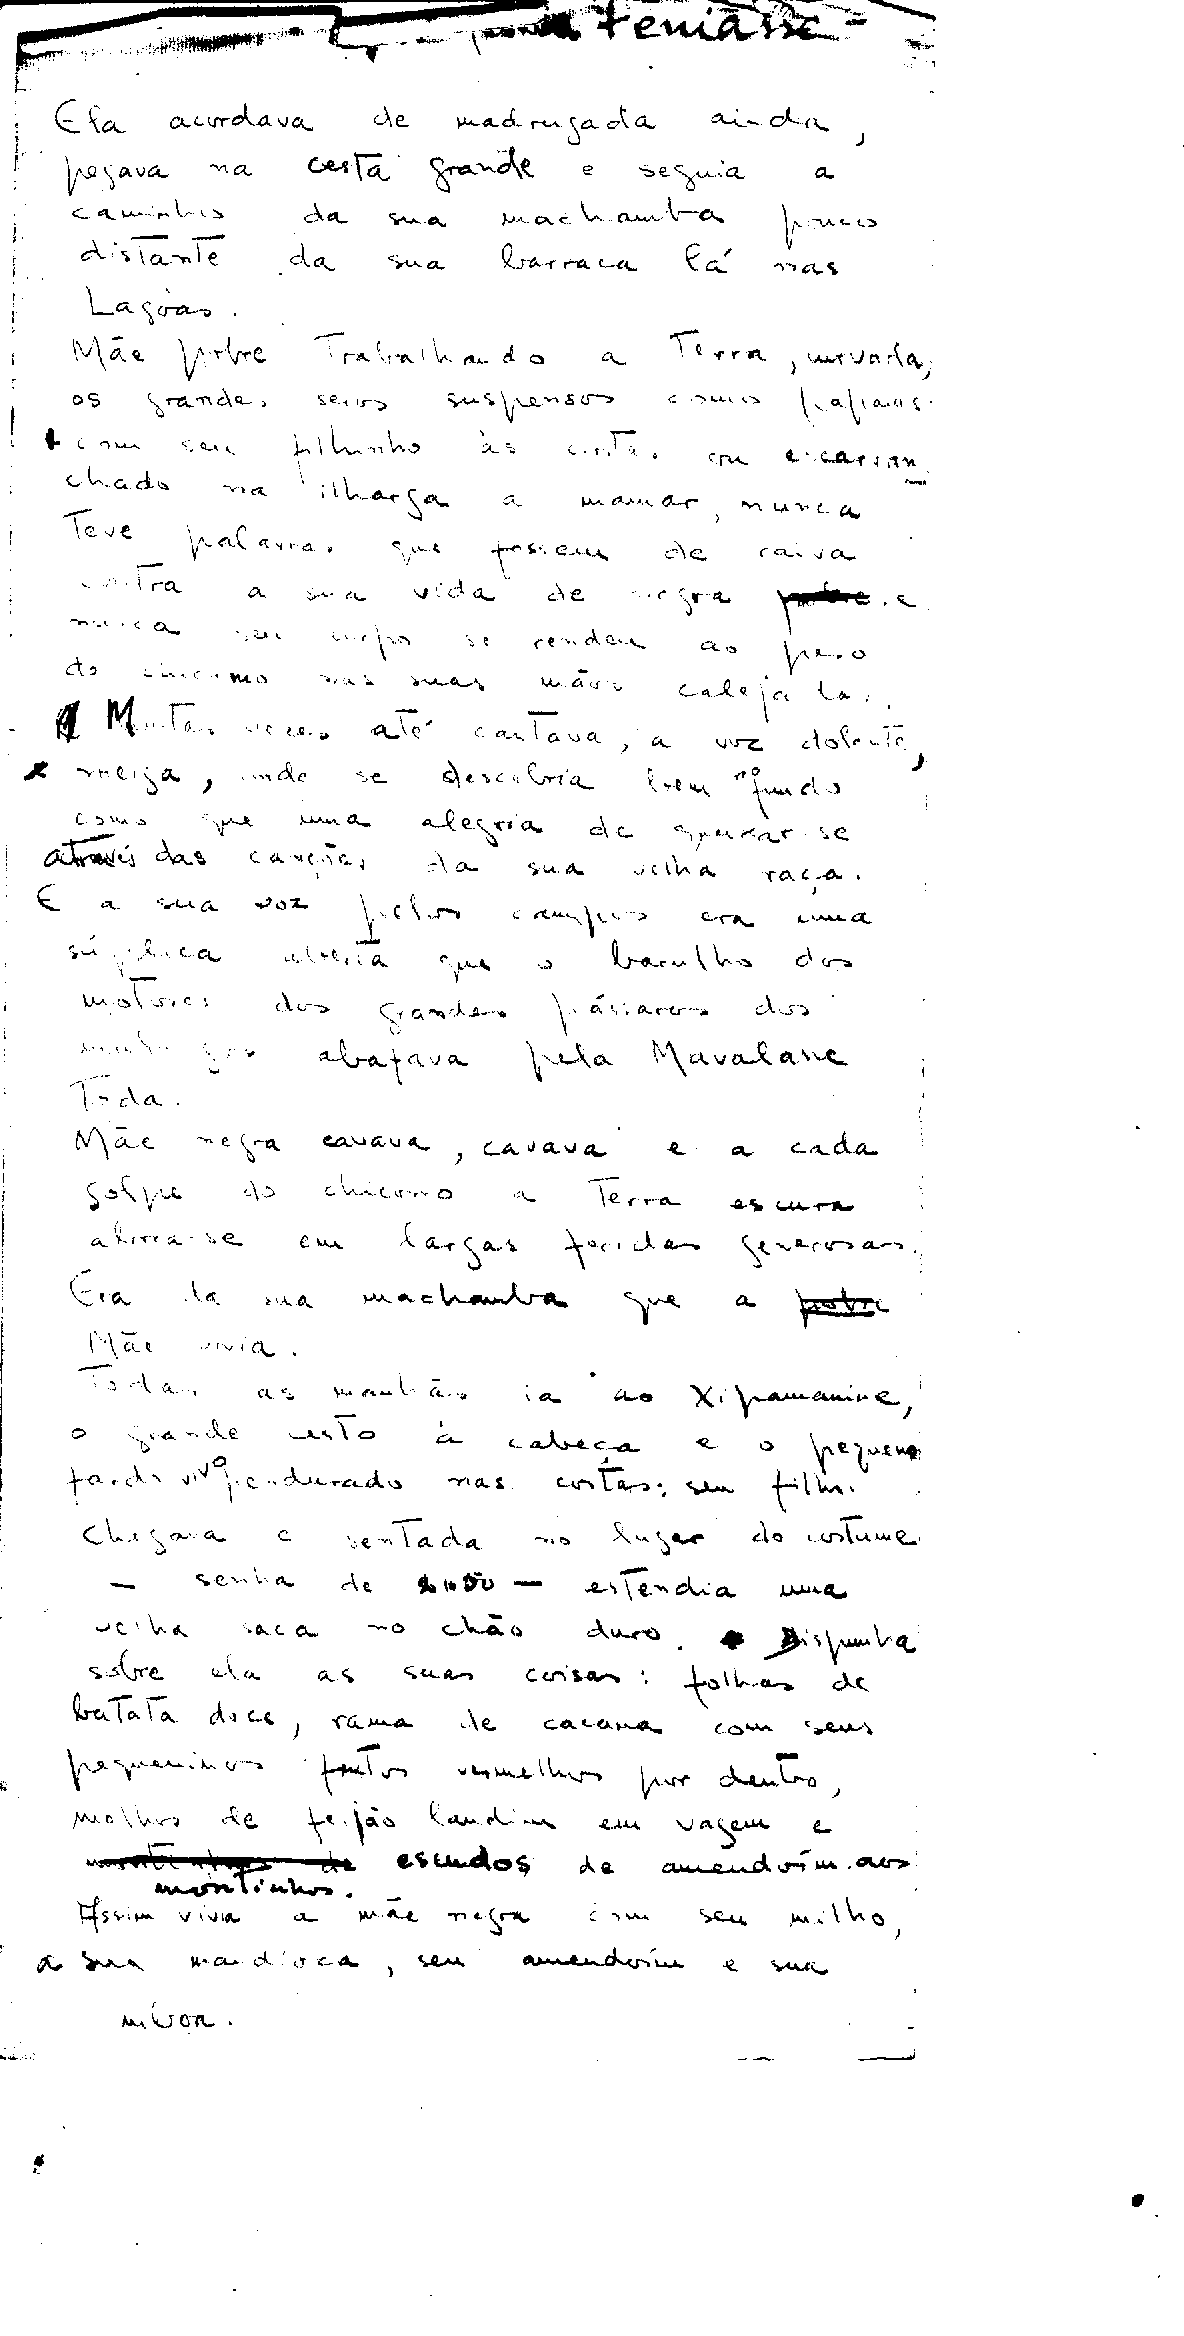 Teniasse -
Ela acordava de madrugada ainda,
pegava na cesta grande e seguia a
caminho da sua machamba pouco
distante da sua barraca lá nas
Lagoas.
Mãe pobre Trabalhando a Terra, curvada,
os grandes seios suspensos como papaias
com seu filhinho às costas ou escarran
chado na ilharga a mamar, nunca
Teve palavras que fossem de raiva
contra a sua vida de negra pobre. e
nunca seu corpo se rendeu ao peso
do chicomo nas suas mãos calejadas.
Muitas vezes até cantava, a voz dolente,
meiga, onde se descobria bem no fundo
como que uma alegria de gravar-se
através das canções da sua velha raça.
E a sua voz pelos campos era uma
súplica aberta que o barulho dos
motores dos grandes pássaros dos
abafava pela Mavalane
Toda.
Mãe negra cavava, cavava e a cada
golpe do chicomo a Terra escura
abria-se em largas feridas generosas.
Era da sua machamba que a pobre
Mãe vivia.
Todas as manhãs ia ao Xipamanine,
o grande cesto à cabeça e o pequeno
fardo vivo pendurado nas costas: seu filho.
Chegava e sentada no lugar do costume
— senha de — estendia uma
velha saca no chão duro. Dispunha
sobre ela as suas coisas: folhas de
batata doce, rama de cacana com seus
pequeninos frutos vermelhos por dentro,
molhos de feijão landim em vagem e
montinhos de escudos de amendoim aos
montinhos.
Assim vivia a mãe negra com seu milho,
a sua mandioca, seu amendoim e sua
nívoa.